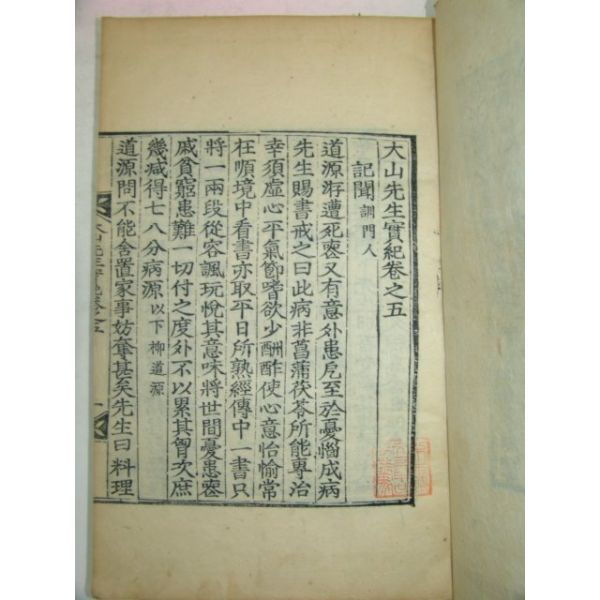 大山先生實紀卷之五
記聞 訓門人
道源洊遭死喪又有意外患厄至於憂惱成病
先生賜書戒之曰此病非菖蒲茯苓所能專治
幸須虛心平氣節嗜欲少酬酢使心意怡愉常
在順境中看書亦取平日所熟經傳中一書只
將一兩段從容諷玩悅其意味將世間憂患喪
戚貧窮患難一切付之度外不以累其胷次庶
幾減得七八分病源 以下柳道源
道源問不能舍置家事妨奪甚矣先生曰料理
大山先生實紀卷之五
一